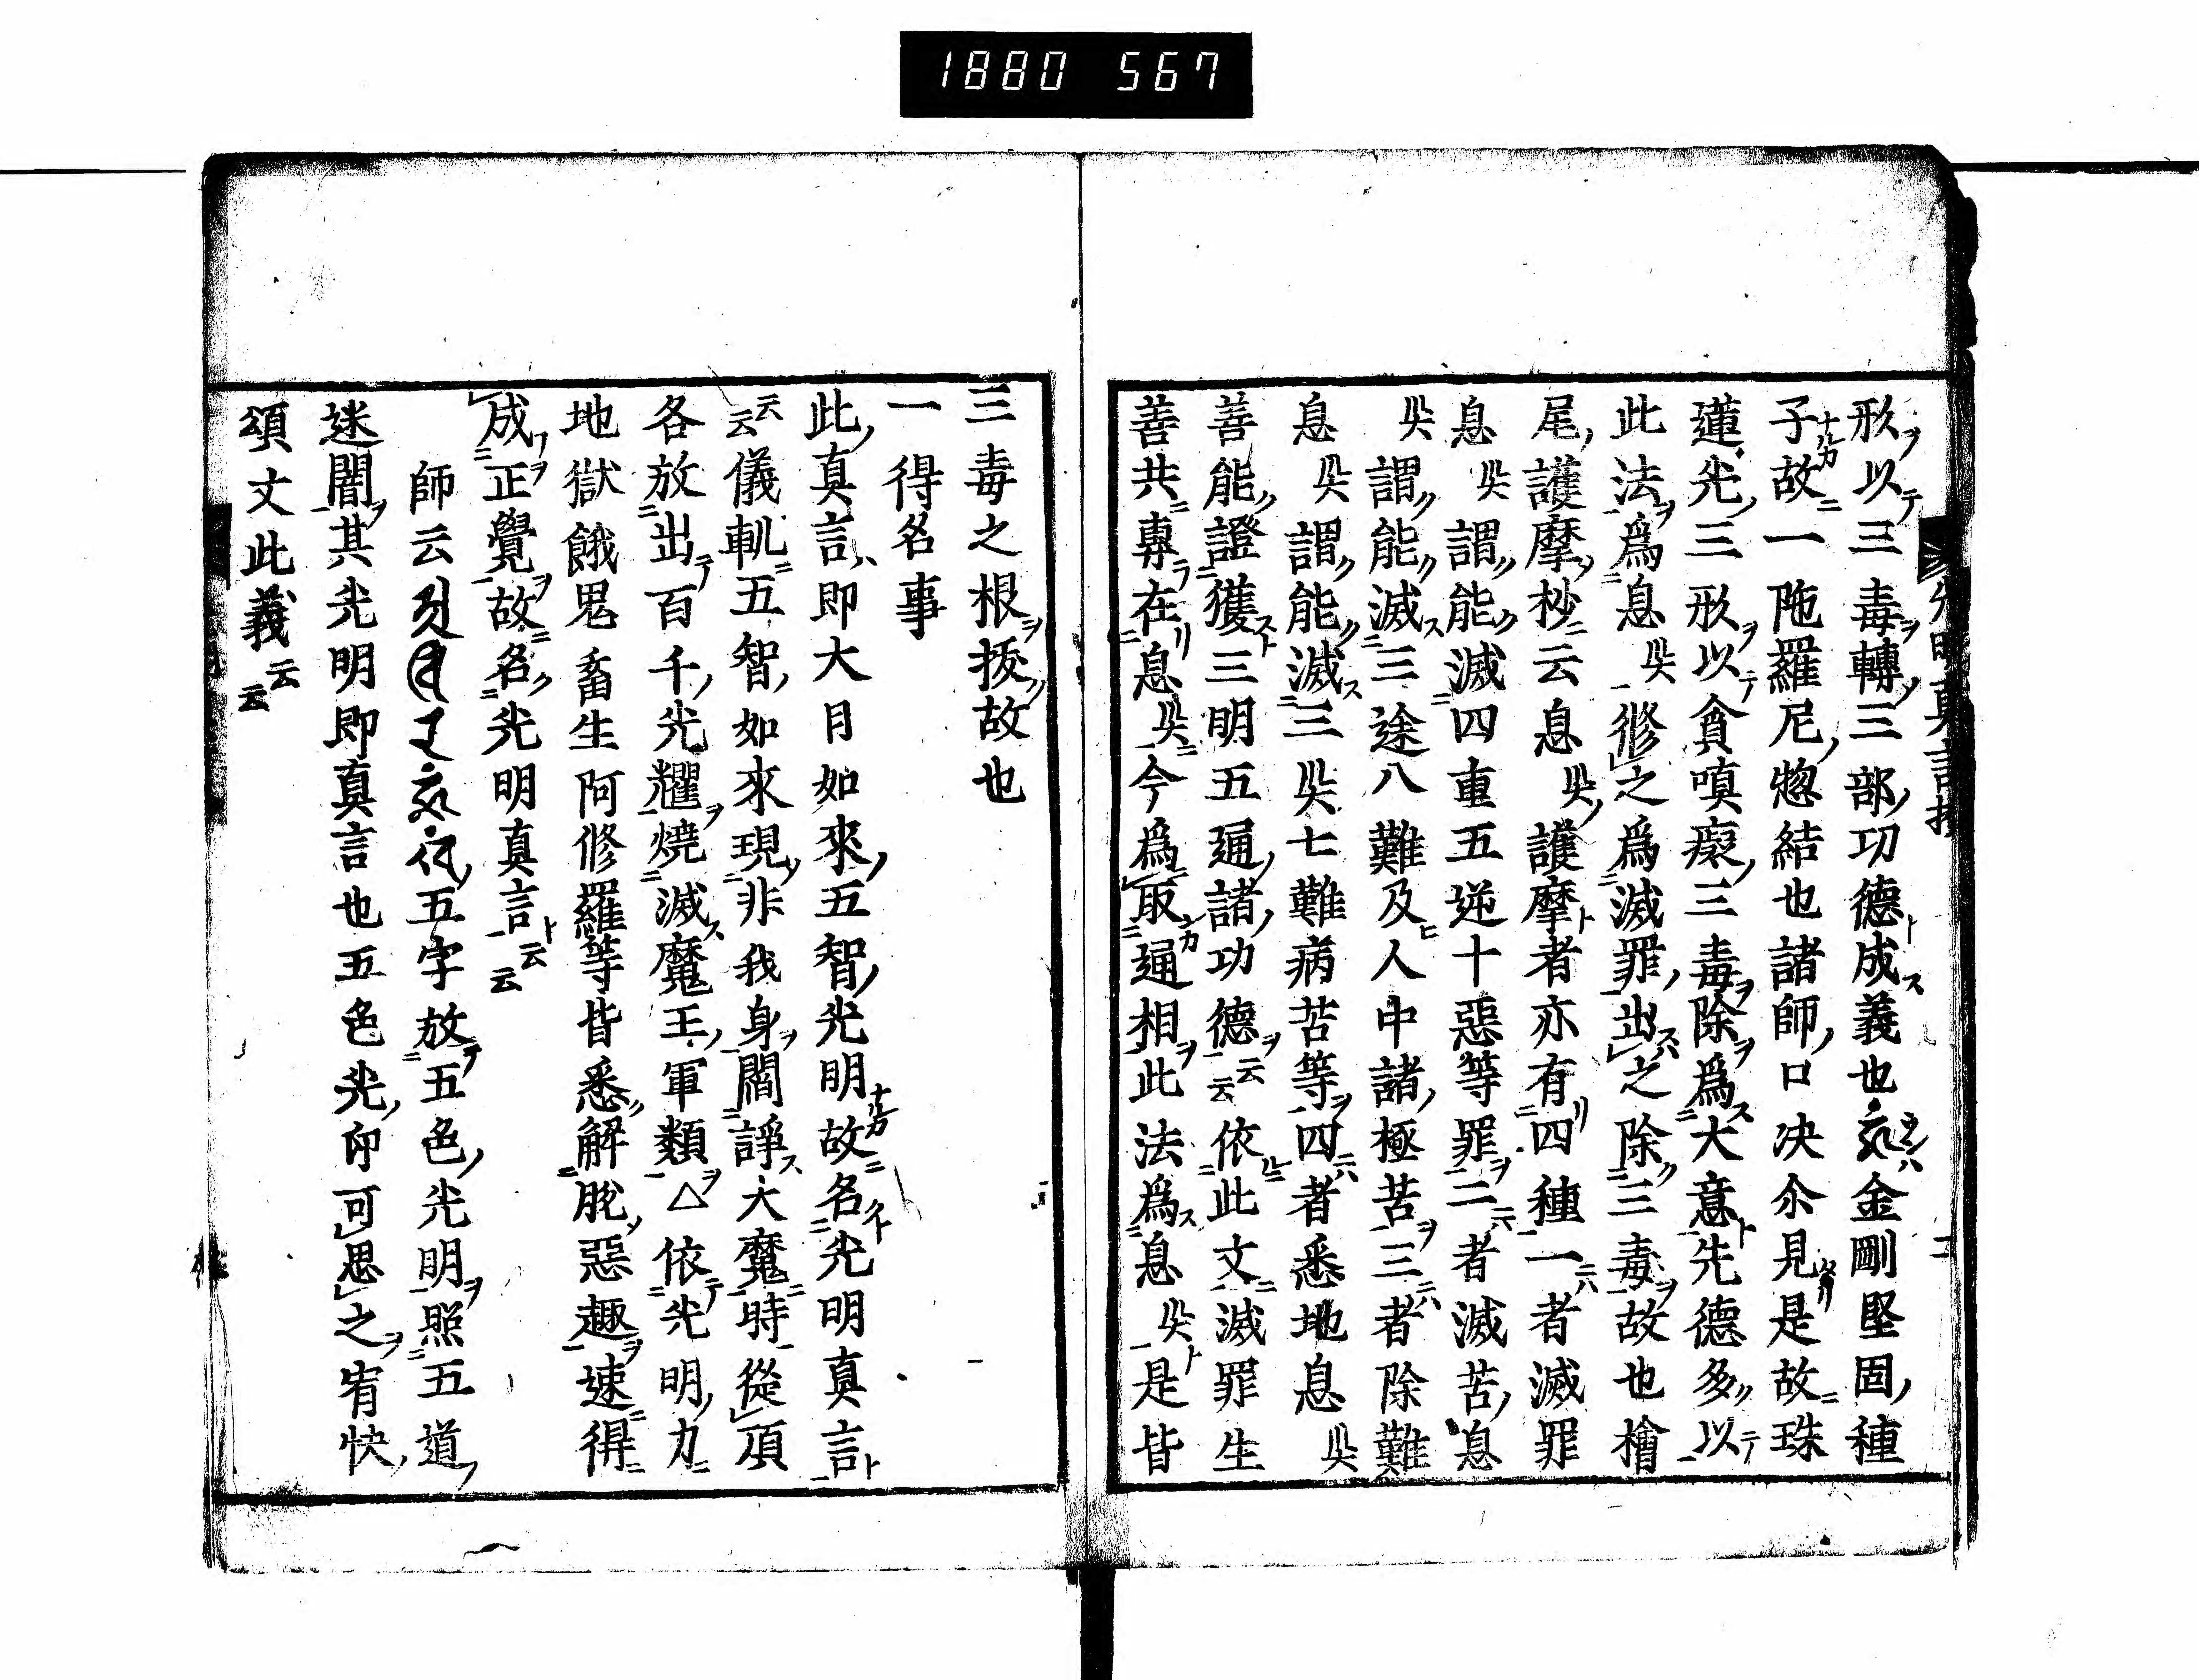 1880 567
形以三毒轉三部功德成義也金剛堅固種
子故一陁羅尼惣結也諸師口决尒見是故珠
蓮光三形以貪嗔癡三毒除爲大意先德多以
此法爲息灾修之爲滅罪出之除三毒故也檜
尾護摩抄云息灾護摩者亦有四種一者滅罪
息灾謂能滅四重五逆十惡等罪二者滅苦息
灾謂能滅三途八難及人中諸極苦三者除難
息灾謂能滅三灾七難病苦等四者悉地息灾
善能證獲三明五通諸功德云云依此文滅罪生
善共專在息灾今爲取通相此法爲息灾是皆
三毒之根拔故也
一得名事
此真言即大日如來五智光明故名光明真言
云云儀軌五智如來現非我身閻諍大魔時從頂
各放出百千光耀燒滅魔王軍類△依光明力
地獄餓鬼畜生阿修羅等皆悉解脫惡趣速得
成正覺故名光明真言云云
師云五字放五色光明照五道
迷闇其光明即真言也五色光印可思之宥快
頌文此義云云